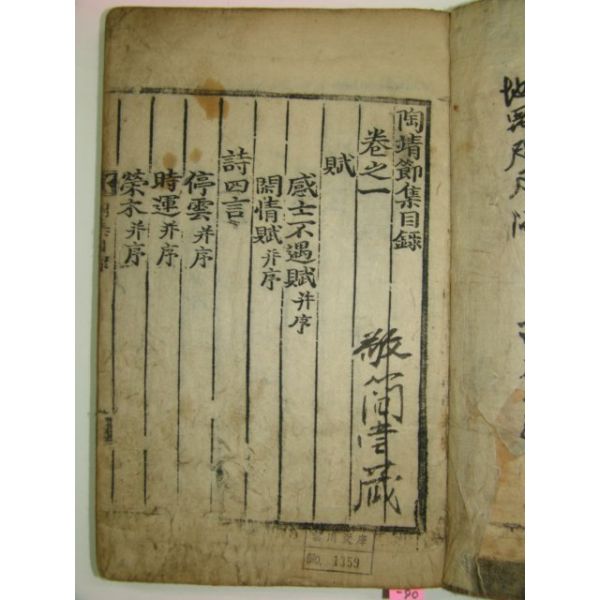 陶靖節集目錄
卷之一
賦
感士不遇賦并序
閑情賦并序
詩四言
停雲并序
時運并序
榮木并序
藏
No. 1359